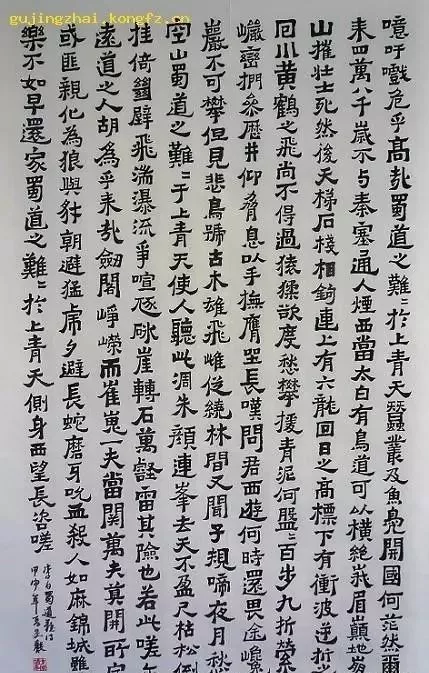 gujingzhai.kongfz.cn
噫吁戲危乎髙哉蜀道之難〻於上青天蠶叢及魚鳧開國何茫然爾
来四萬八千歲不与秦塞通人煙西當太白有鳥道可以橫絕峩眉巔地崩
山摧壮士死然後天梯石棧相鉤連上有六龍回日之高標下有衝波逆折之
回川黃鶴之飛尚不得過猿猱欲度愁攀援青泥何盤〻百步九折縈
巖巒捫參歷井仰脅息以手撫膺坐長嘆問君西遊何時還畏途巉
巖不可攀但見悲鳥號古木雄飛雌從繞林間又聞子規啼夜月愁
空山蜀道之難〻于上青天使人聽此凋朱顏連峯去天不盈尺枯松倒
挂倚絕壁飛湍瀑流爭喧豗砯崖轉石萬壑雷其險也若此嗟尔
遠道之人胡為乎来哉劒閣崢嶸而崔嵬一夫當関萬夫莫開所守
或匪親化為狼與豺朝避猛虎夕避長蛇磨牙吮血殺人如麻錦城雖
樂不如早還家蜀道之難〻於上青天側身西望長咨嗟
李白蜀道難詩
甲申年